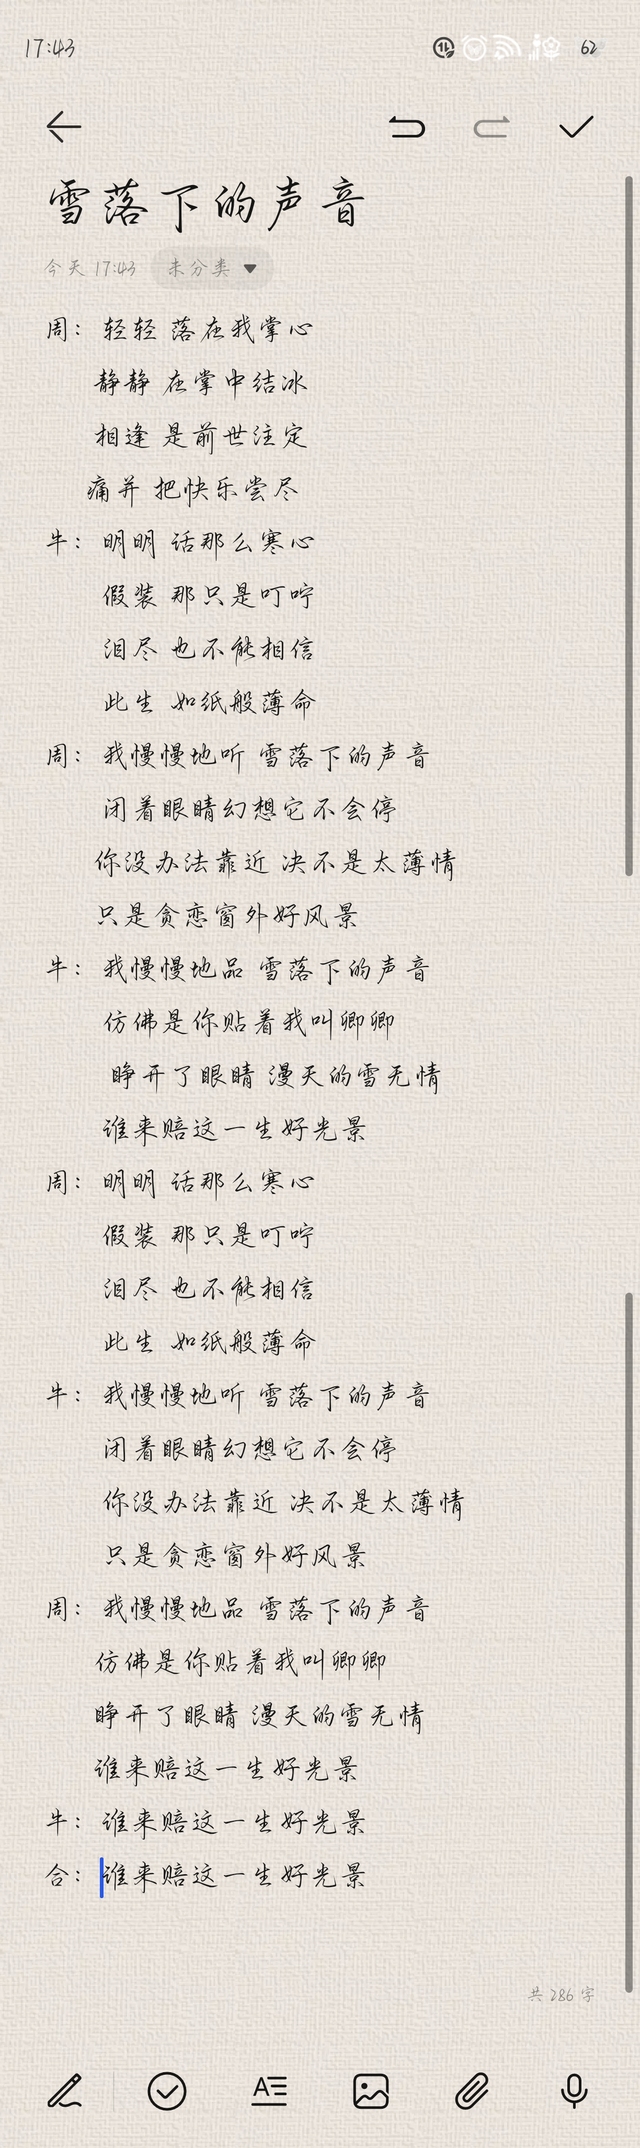 17:43
62
雪落下的声音
今天 17:43 未分类
周：轻轻 落在我掌心
静静 在掌中结冰
相逢 是前世注定
痛并 把快乐尝尽
牛：明明 话那么寒心
假装 那只是叮咛
泪尽 也不能相信
此生 如纸般薄命
周：我慢慢地听 雪落下的声音
闭着眼睛幻想它不会停
你没办法靠近 决不是太薄情
只是贪恋窗外好风景
牛：我慢慢地品 雪落下的声音
仿佛是你贴着我叫卿卿
睁开了眼睛 漫天的雪无情
谁来赔这一生好光景
周：明明 话那么寒心
假装 那只是叮咛
泪尽 也不能相信
此生 如纸般薄命
牛：我慢慢地听 雪落下的声音
闭着眼睛幻想它不会停
你没办法靠近 决不是太薄情
只是贪恋窗外好风景
周：我慢慢地品 雪落下的声音
仿佛是你贴着我叫卿卿
睁开了眼睛 漫天的雪无情
谁来赔这一生好光景
牛：谁来赔这一生好光景
合：谁来赔这一生好光景
共 286 字